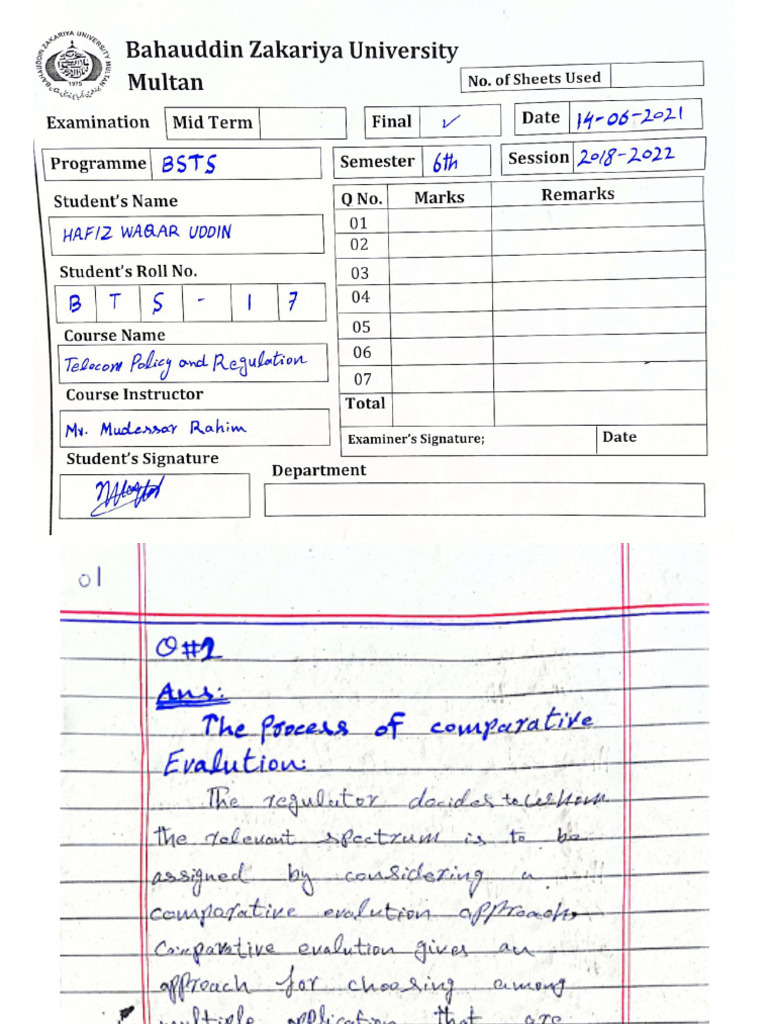 BAHAUDDIN ZAKARIYA UNIVERSITY MULTAN
1975
Bahauddin Zakariya University
Multan
No. of Sheets Used
Examination Mid Term Final ✓ Date 14-06-2021
Programme BSTS Semester 6th Session 2018-2022
Student's Name
HAFIZ WAQAR UDDIN
Student's Roll No.
B T S - 1 7
Course Name
Telecom Policy and Regulation
Course Instructor
Mr. Mudessar Rahim
Student's Signature
Q No. Marks Remarks
01
02
03
04
05
06
07
Total
Examiner's Signature; Date
Department
01
Q#1
Ans:
The Process of comparative
Evalution:
The regulator decides to whom
the relevant spectrum is to be
assigned by considering a
comparative evalution approach.
Comparative evalution gives an
approach for choosing among
multiple application that are